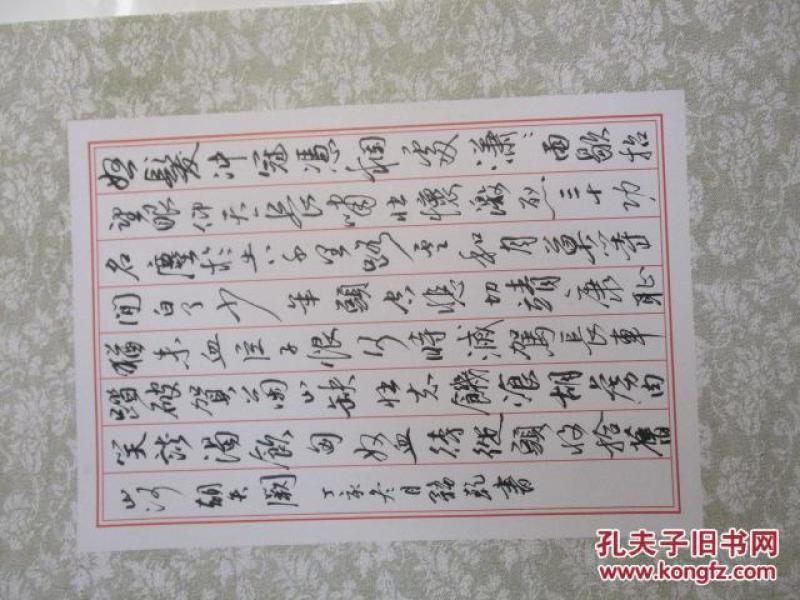 怒髮冲冠憑闌處瀟々雨歇抬
望眼仰天長嘯壯懷激烈三十功
名塵於土八千里路雲和月莫等
閒白了少年頭空悲切靖康恥
猶未血臣子恨何時滅駕長車
踏破賀蘭山缺壯志饑湌胡虜肉
笑談渴飲匈奴血待從頭收拾舊
山河朝天闕 丁亥冬月乾書
孔夫子旧书网
www.kongfz.com